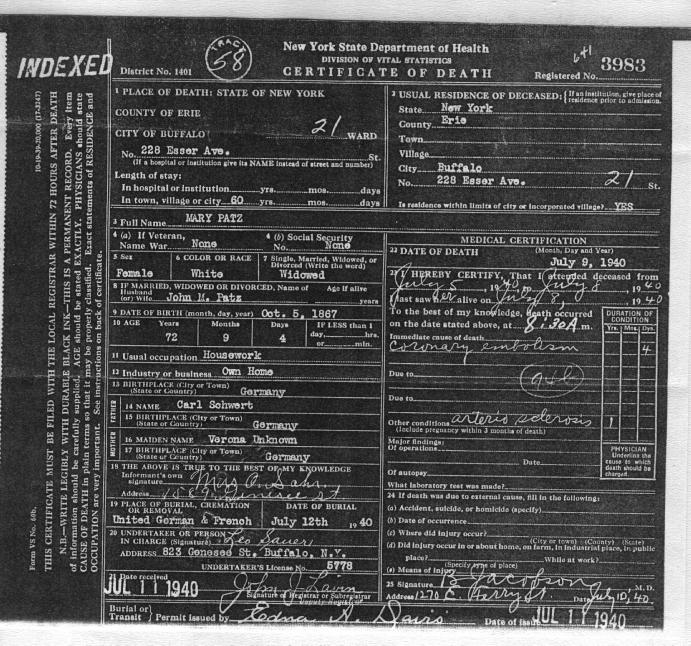 INDEXED
TRACT 58
New York State Department of Health
DIVISION OF VITAL STATISTICS
CERTIFICATE OF DEATH
District No. 1401
641
Registered No. 3983
1 PLACE OF DEATH: STATE OF NEW YORK
COUNTY OF ERIE
CITY OF BUFFALO 21 WARD
No. 228 Esser Ave. St.
(If a hospital or institution give its NAME instead of street and number)
Length of stay:
In hospital or institution yrs. mos. days
In town, village or city 60 yrs. mos. days
2 USUAL RESIDENCE OF DECEASED: (If an institution, give place of residence prior to admission.
State New York
County Erie
Town
Village
City Buffalo
No. 228 Esser Ave. 21 St.
Is residence within limits of city or incorporated village? YES
3 Full Name MARY PATZ
4 (a) If Veteran, Name War None
4 (b) Social Security No. None
5 Sex Female
6 COLOR OR RACE White
7 Single, Married, Widowed, or Divorced (Write the word) Widowed
8 IF MARRIED, WIDOWED OR DIVORCED, Name of Husband (or) Wife John M. Patz Age if alive years
9 DATE OF BIRTH (month, day, year) Oct. 5, 1867
10 AGE Years 72 Months 9 Days 4 IF LESS than 1 day, hrs. or min.
11 Usual occupation Housework
12 Industry or business Own Home
13 BIRTHPLACE (City or Town)
(State or Country) Germany
FATHER
14 NAME Carl Schwert
15 BIRTHPLACE (City or Town)
(State or Country) Germany
MOTHER
16 MAIDEN NAME Verona Unknown
17 BIRTHPLACE (City or Town)
(State or Country) Germany
18 THE ABOVE IS TRUE TO THE BEST OF MY KNOWLEDGE
Informant's own signature
Address
19 PLACE OF BURIAL, CREMATION OR REMOVAL United German & French
DATE OF BURIAL July 12th, 40
20 UNDERTAKER OR PERSON IN CHARGE (Signature) Leo Sauer
ADDRESS 823 Genesee St. Buffalo, N.Y.
UNDERTAKER'S License No. 5778
21 Date received JUL 11 1940
John J. Lavin
Signature of Registrar or Subregistrar
Deputy Registrar
Burial or Transit Permit issued by Edna H. Davis Date of issue JUL 11 1940
MEDICAL CERTIFICATION
22 DATE OF DEATH (Month, Day and Year) July 9, 1940
23 I HEREBY CERTIFY, That I attended deceased from
July 5, 1940 to July 8, 1940
I last saw her alive on July 8, 1940
To the best of my knowledge, death occurred on the date stated above, at 8:30 A m.
DURATION OF CONDITION
Yrs. Mos. Dys.
Immediate cause of death
coronary embolism 4
Due to
94b
Due to
Other conditions arterio sclerosis 1
(Include pregnancy within 3 months of death)
Major findings:
Of operations
Date
Of autopsy
PHYSICIAN
Underline the cause to which death should be charged.
What laboratory test was made?
24 If death was due to external cause, fill in the following:
(a) Accident, suicide, or homicide (specify)
(b) Date of occurrence
(c) Where did injury occur?
(City or town) (County) (State)
(d) Did injury occur in or about home, on farm, in industrial place, in public place? While at work?
(Specify type of place)
(e) Means of injury
25 Signature B Jacobson M.D.
Address 1270 E. Ferry St Date July 10, 40
Form VS No. 60b.
10-19-39-20,000 (17-2347)
THIS CERTIFICATE MUST BE FILED WITH THE LOCAL REGISTRAR WITHIN 72 HOURS AFTER DEATH
N.B.—WRITE LEGIBLY WITH DURABLE BLACK INK—THIS IS A PERMANENT RECORD. Every item
of information should be carefully supplied. AGE should be stated EXACTLY. PHYSICIANS should state
CAUSE OF DEATH in plain terms so that it may be properly classified. Exact statements of RESIDENCE and
OCCUPATION are very important. See instructions on back of certificate.